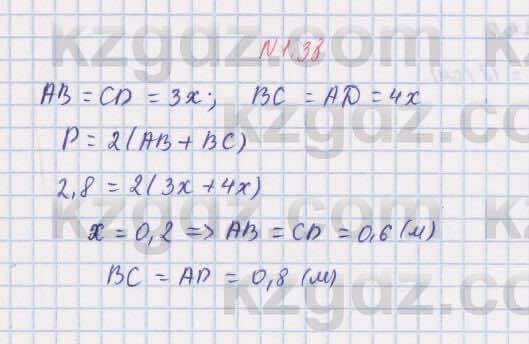 N1.38
AB = CD = 3x; BC = AD = 4x
P = 2(AB + BC)
2,8 = 2(3x + 4x)
x = 0,2 => AB = CD = 0,6 (м)
BC = AD = 0,8 (м)
kzgdz.com
kzgdz.com
kzgdz.com
kzgdz.com